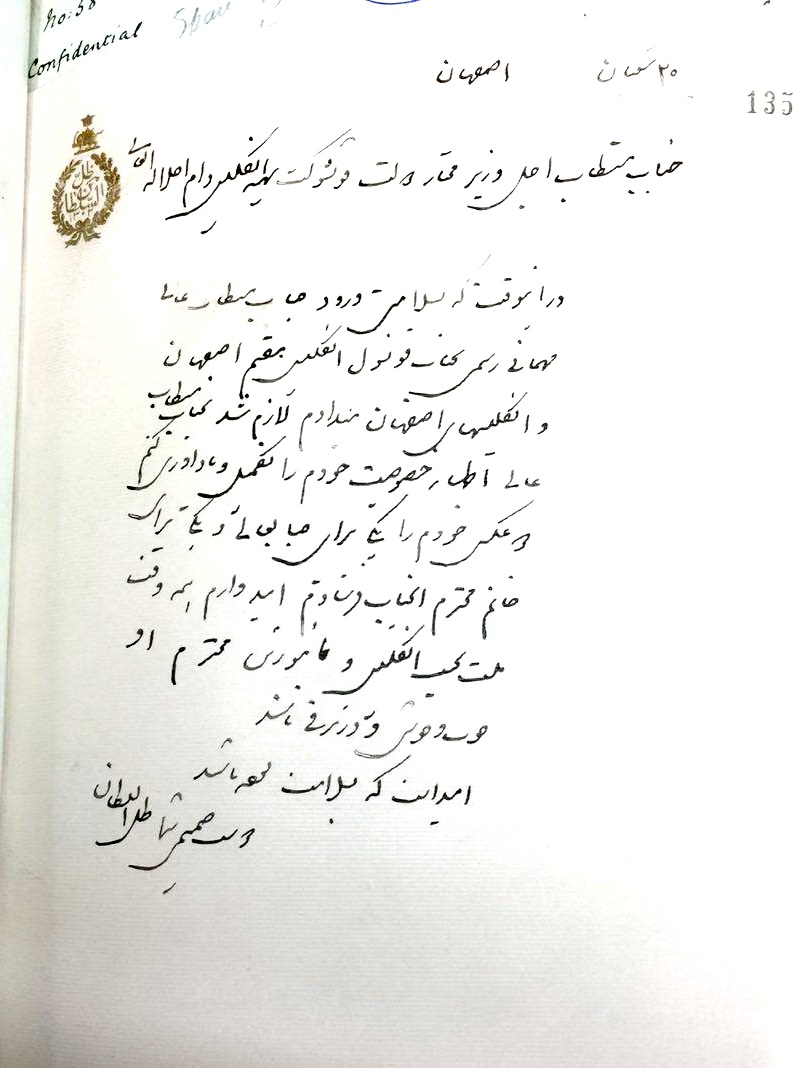 No: 58
Confidential
۲۰ شعبان اصفهان
135
ظل السلطان
جناب مستطاب اجل وزیر مختار دولت قوی‌شوکت بهیه انگلیس دام اجلاله العالی
در این موقت که سلامتی ورود جناب مستطاب عالی
مهمانی رسمی بجناب قونسول انگلیس مقیم اصفهان
و انگلیسهای اصفهان میدادم لازم شد بجناب مستطاب
عالی اظهار خصوصیت خودم را بکنم و یادآوری کنم
دو عکس خودم را یکی برای جنابعالی و یکی برای
خانم محترم آنجناب فرستادم امیدوارم همه وقت
ملت نجیب انگلیس و مامورین محترم او
خوب و خوش و در ترقی باشند
امید است که سلامت همه باشد
دوست صمیمی شما ظل السلطان